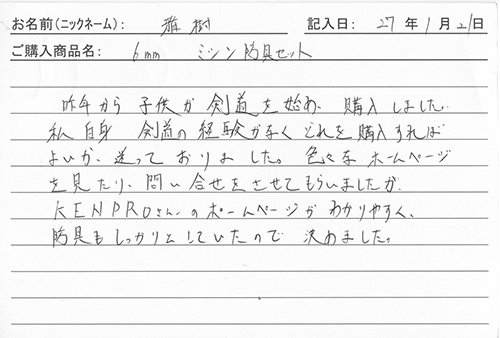 お名前(ニックネーム): 雅樹 記入日: 27年1月21日
ご購入商品名: 6mm ミシン防具セット
昨年から子供が剣道を始め、購入しました。
私自身 剣道の経験がなくどれを購入すれば
よいか、迷っておりました。色々なホームページ
を見たり、問い合せをさせてもらいましたが、
KENPROさんのホームページがわかりやすく、
防具もしっかりとしていたので 決めました。